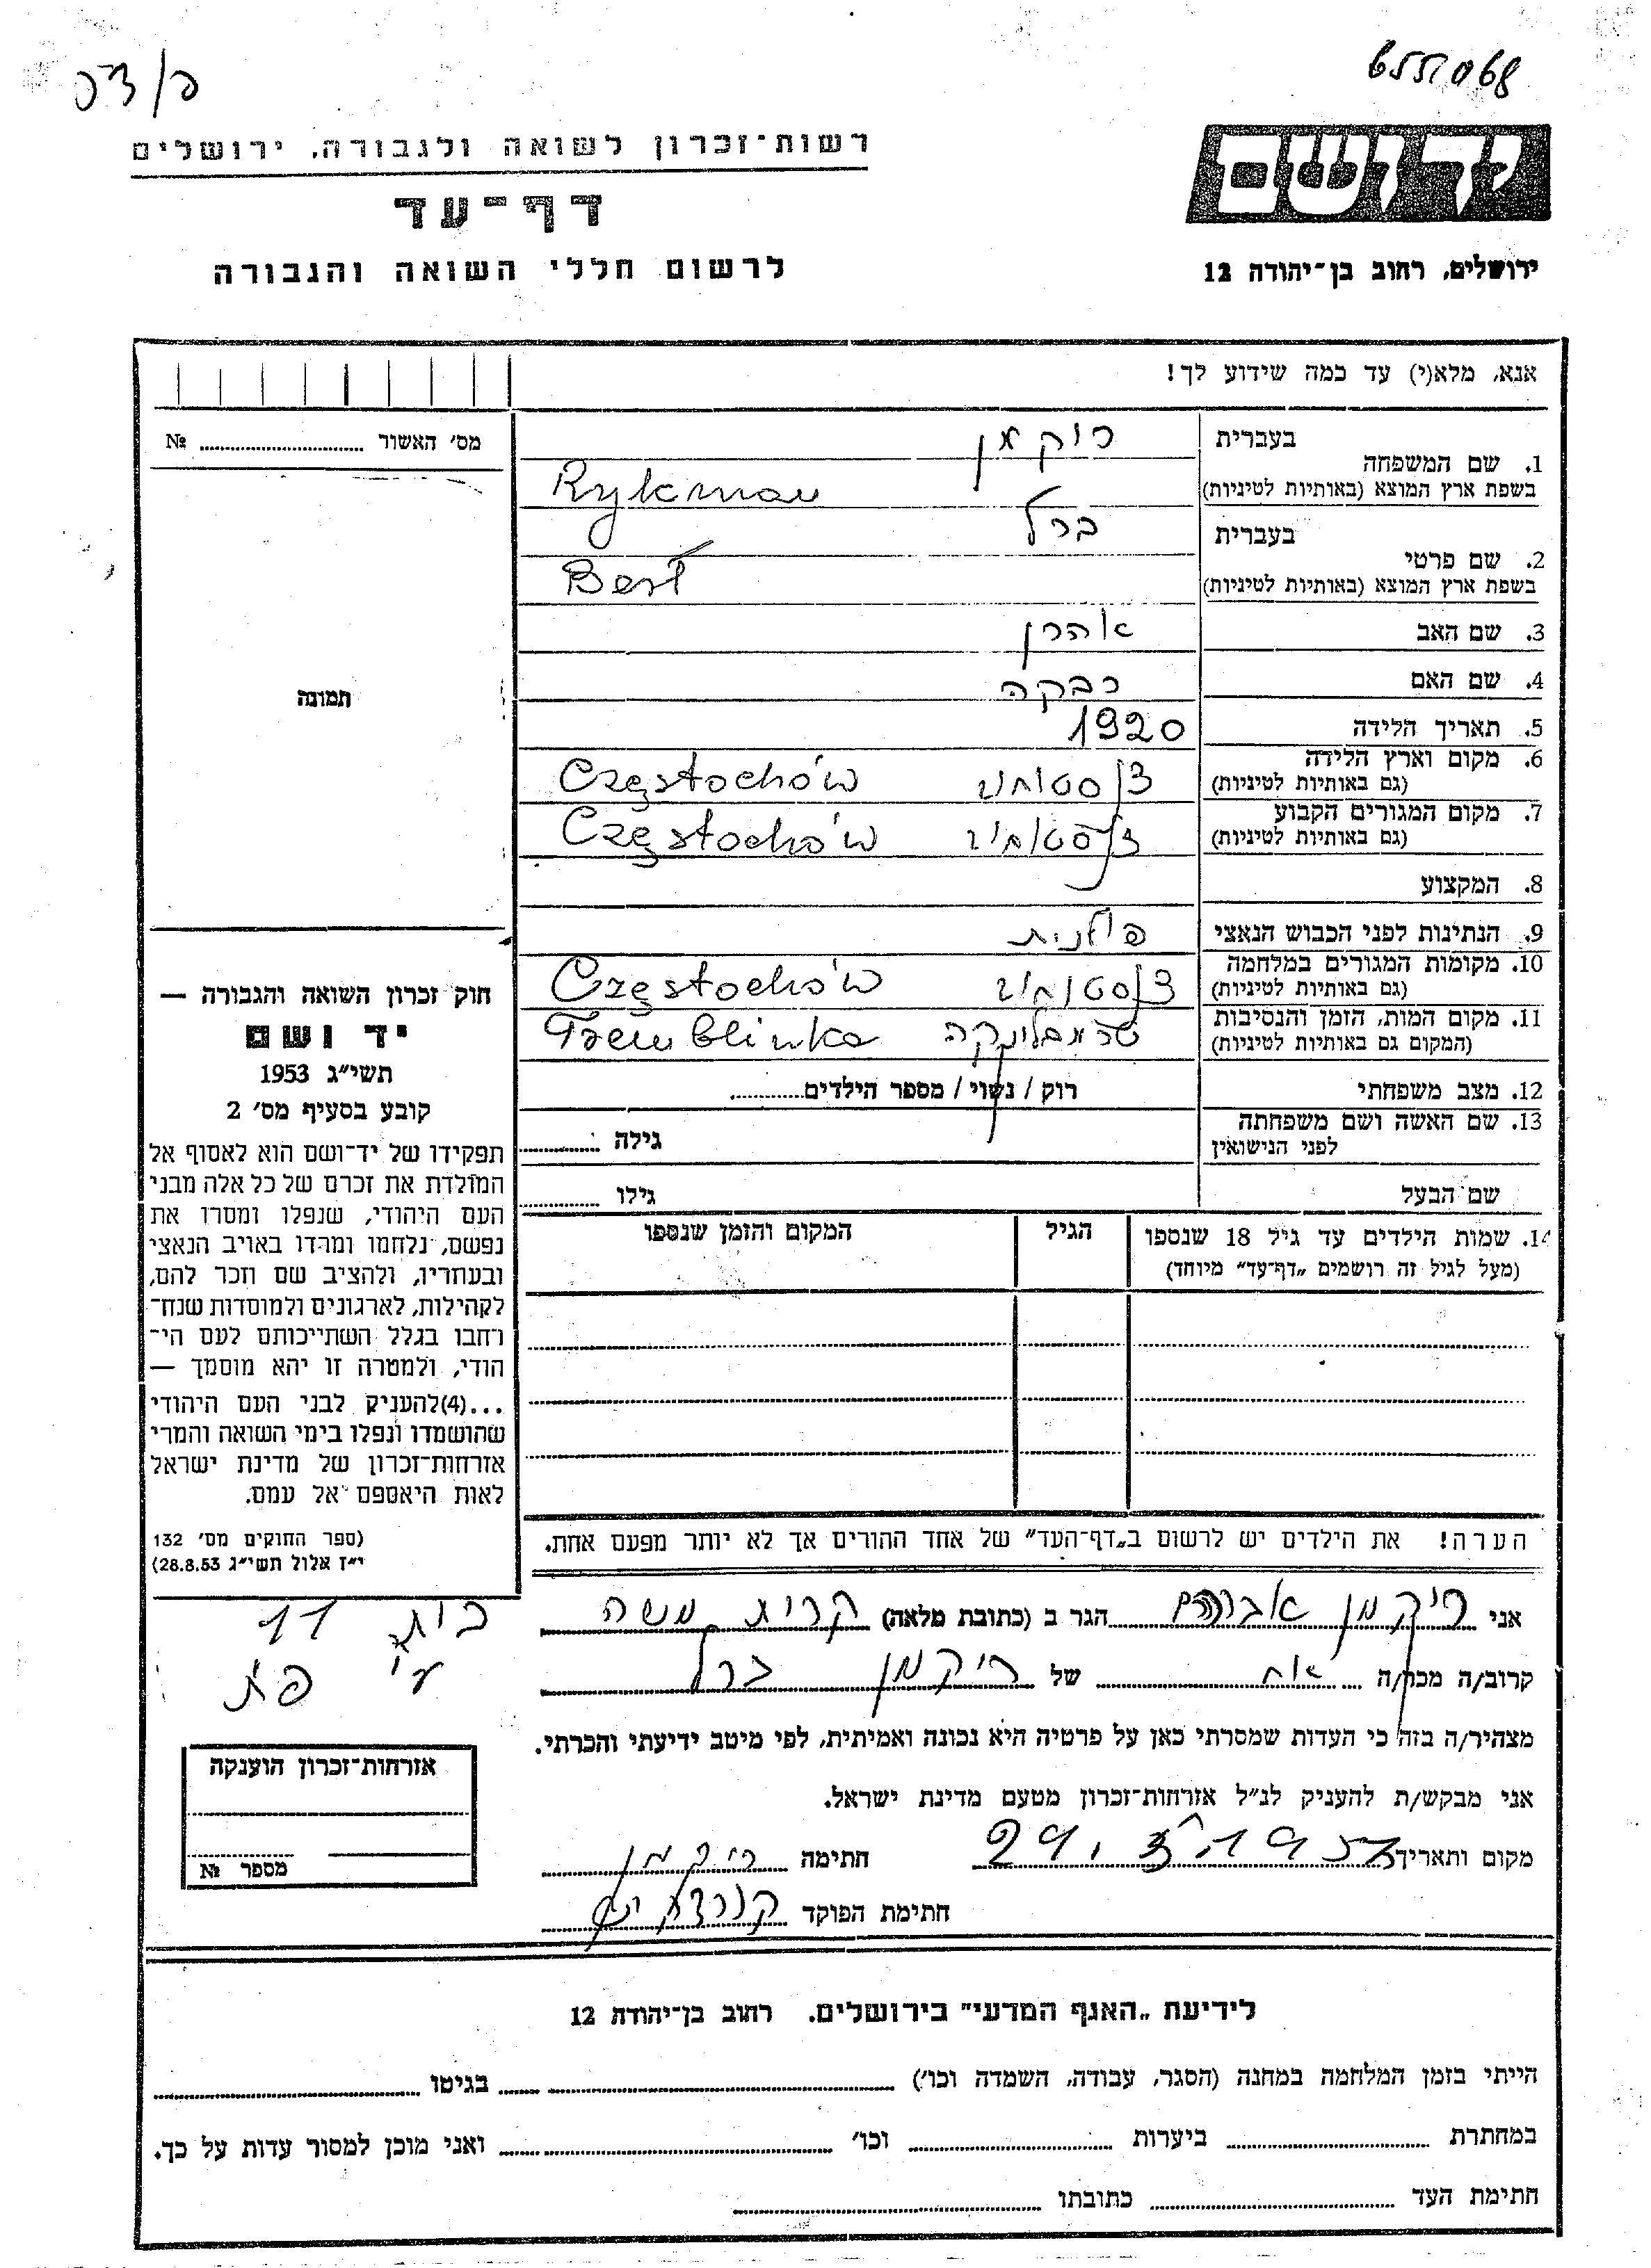 רשות־זכרון לשואה ולגבורה, ירושלים
דף־עד
לרשום חללי השואה והגבורה
יד ושם
ירושלים, רחוב בן־יהודה 12
אנא, מלא(י) עד כמה שידוע לך!
מס׳ האשור ........ №
תמונה
בעברית
1. שם המשפחה
בשפת ארץ המוצא (באותיות לטיניות)
ריקמן
Rykman
בעברית
2. שם פרטי
בשפת ארץ המוצא (באותיות לטיניות)
ברל
Berł
3. שם האב אהרן
4. שם האם רבקה
5. תאריך הלידה 1920
6. מקום וארץ הלידה
(גם באותיות לטיניות)
Częstochów
7. מקום המגורים הקבוע
(גם באותיות לטיניות)
Częstochów
8. המקצוע
9. הנתינות לפני הכבוש הנאצי פולנית
10. מקומות המגורים במלחמה
(גם באותיות לטיניות)
Częstochów
11. מקום המות, הזמן והנסיבות
(המקום גם באותיות לטיניות)
טרמבלינקה Tremblinka
12. מצב משפחתי רוק / נשוי / מספר הילדים........
13. שם האשה ושם משפחתה
לפני הנישואין
גילה ........
שם הבעל גילו ........
14. שמות הילדים עד גיל 18 שנספו
(מעל לגיל זה רושמים „דף־עד״ מיוחד)
הגיל
המקום והזמן שנספו
הערה! את הילדים יש לרשום ב„דף־העד״ של אחד ההורים אך לא יותר מפעם אחת.
חוק זכרון השואה והגבורה —
יד ושם
תשי״ג 1953
קובע בסעיף מס׳ 2
תפקידו של יד־ושם הוא לאסוף אל
המולדת את זכרם של כל אלה מבני
העם היהודי, שנפלו ומסרו את
נפשם, נלחמו ומרדו באויב הנאצי
ובעוזריו, ולהציב שם וזכר להם,
לקהילות, לארגונים ולמוסדות שנח־
רחבו בגלל השתייכותם לעם הי־
הודי, ולמטרה זו יהא מוסמך —
...(4)להעניק לבני העם היהודי
שהושמדו ונפלו בימי השואה והמרי
אזרחות־זכרון של מדינת ישראל
לאות היאספם אל עמם.
(ספר החוקים מס׳ 132
י״ז אלול תשי״ג 28.8.53)
אני ריקמן אברהם הגר ב (כתובת מלאה) קרית משה
בית 11
קרוב/ה מכר/ה אח של ריקמן ברל
מצהיר/ה בזה כי העדות שמסרתי כאן על פרטיה היא נכונה ואמיתית, לפי מיטב ידיעתי והכרתי.
אני מבקש/ת להעניק לנ״ל אזרחות־זכרון מטעם מדינת ישראל.
מקום ותאריך חתימה ריקמן
חתימת הפוקד
אזרחות־זכרון הוענקה
מספר №
לידיעת „האגף המדעי״ בירושלים. רחוב בן־יהודה 12
הייתי בזמן המלחמה במחנה (הסגר, עבודה, השמדה וכו׳) ........ בגיטו ........
במחתרת ........ ביערות ........ וכו׳ ........ ואני מוכן למסור עדות על כך.
חתימת העד ........ כתובתו ........